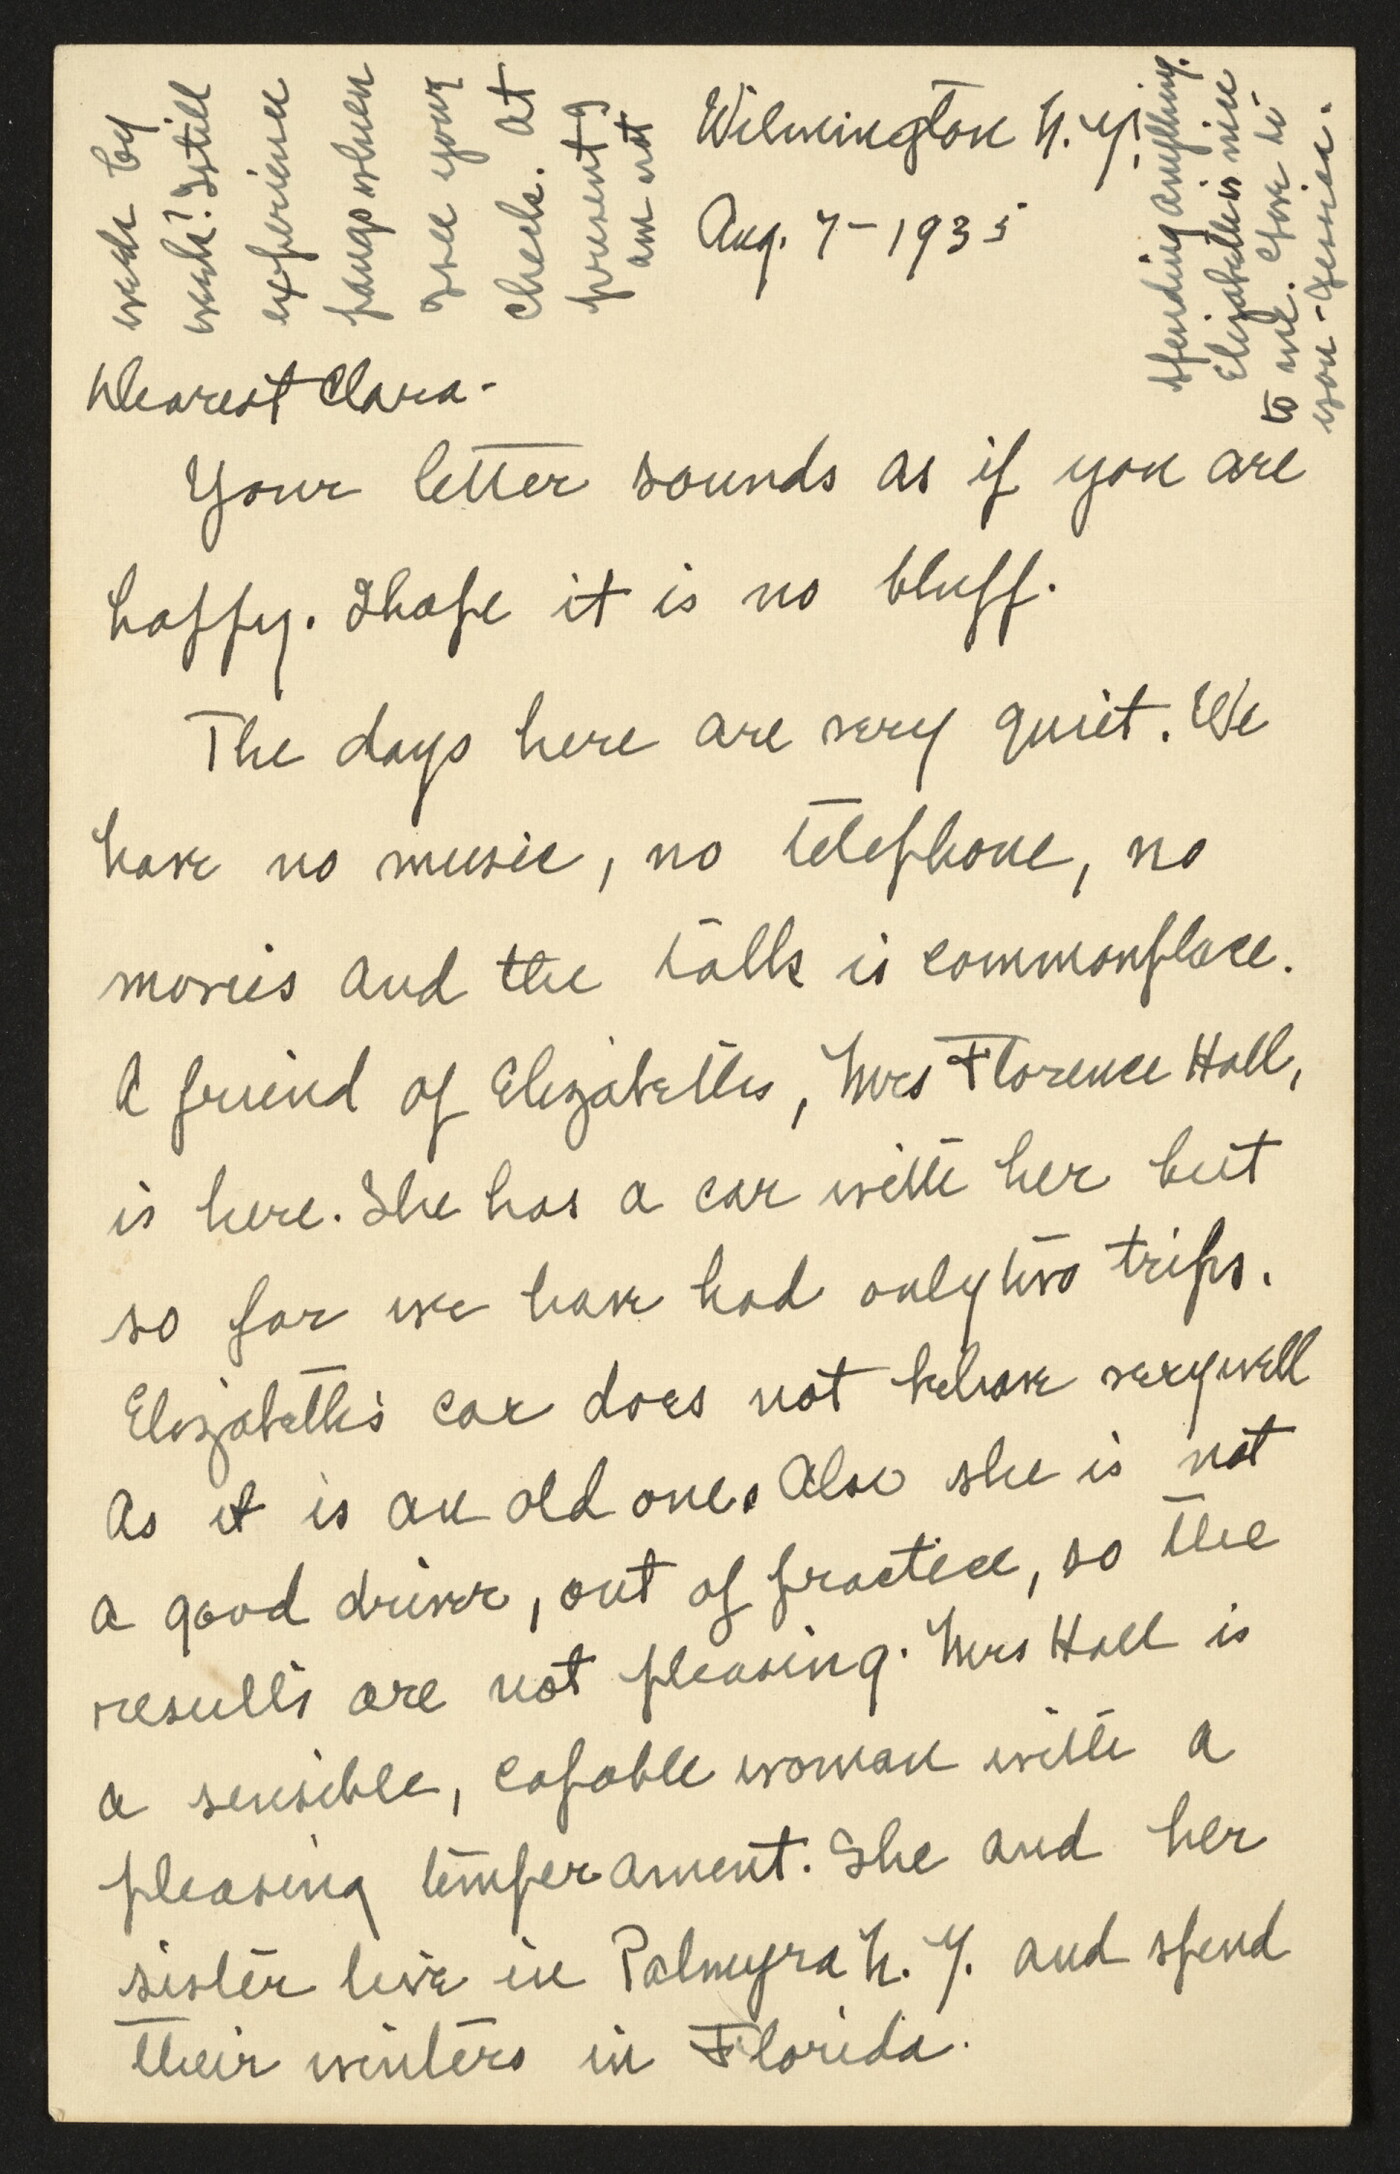 Wilmington N.Y.
Aug. 7-1935
Dearest Clara-
Your letter sounds as if you are
happy. I hope it is no bluff.
The days here are very quiet. We
have no music, no telephone, no
movies and the talk is commonplace.
A friend of Elizabeths, Mrs Florence Hall,
is here. She has a car with her but
so far we have had only two trips.
Elizabeth's car does not behave very well
as it is an old one. Also she is not
a good driver, out of practice, so the
results are not pleasing. Mrs Hall is
a sensible, capable woman with a
pleasing temperament. She and her
sister live in Palmyra N.Y. and spend
their winters in Florida.
week by
week? I still
experience
pangs when
I see your
check. At
present I
am not
spending anything.
Elizabeth is nice
to me. Love to
you - Jessica.